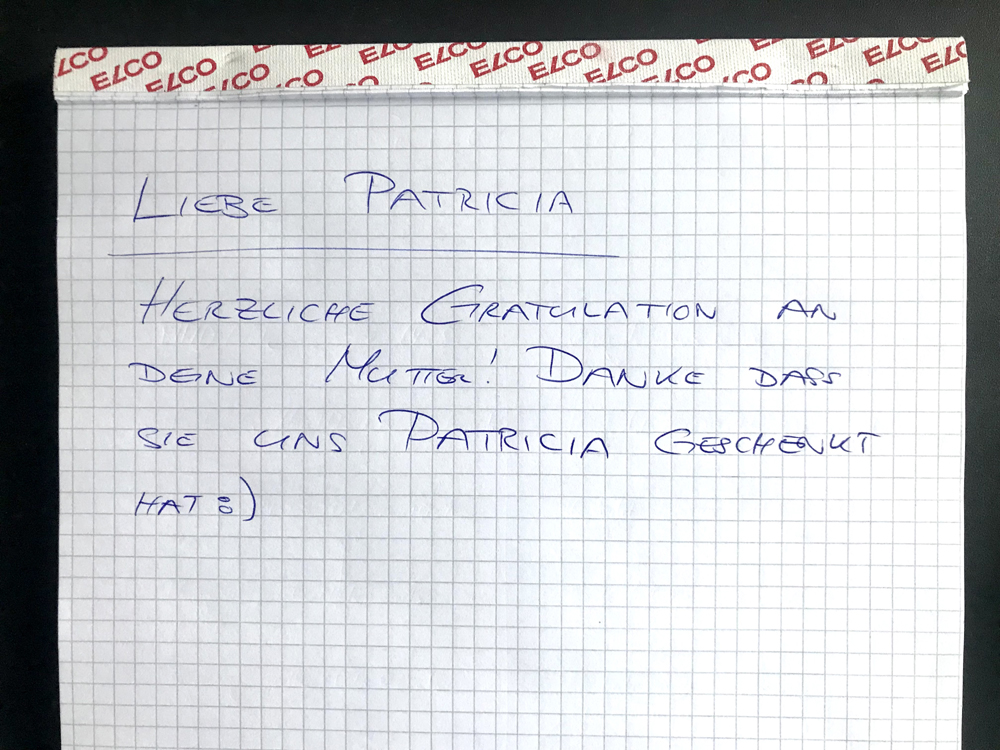 ELCO ELCO ELCO ELCO ELCO ELCO ELCO ELCO ELCO
LIEBE PATRICIA
HERZLICHE GRATULATION AN
DEINE MUTTER! DANKE DASS
SIE UNS PATRICIA GESCHENKT
HAT :)